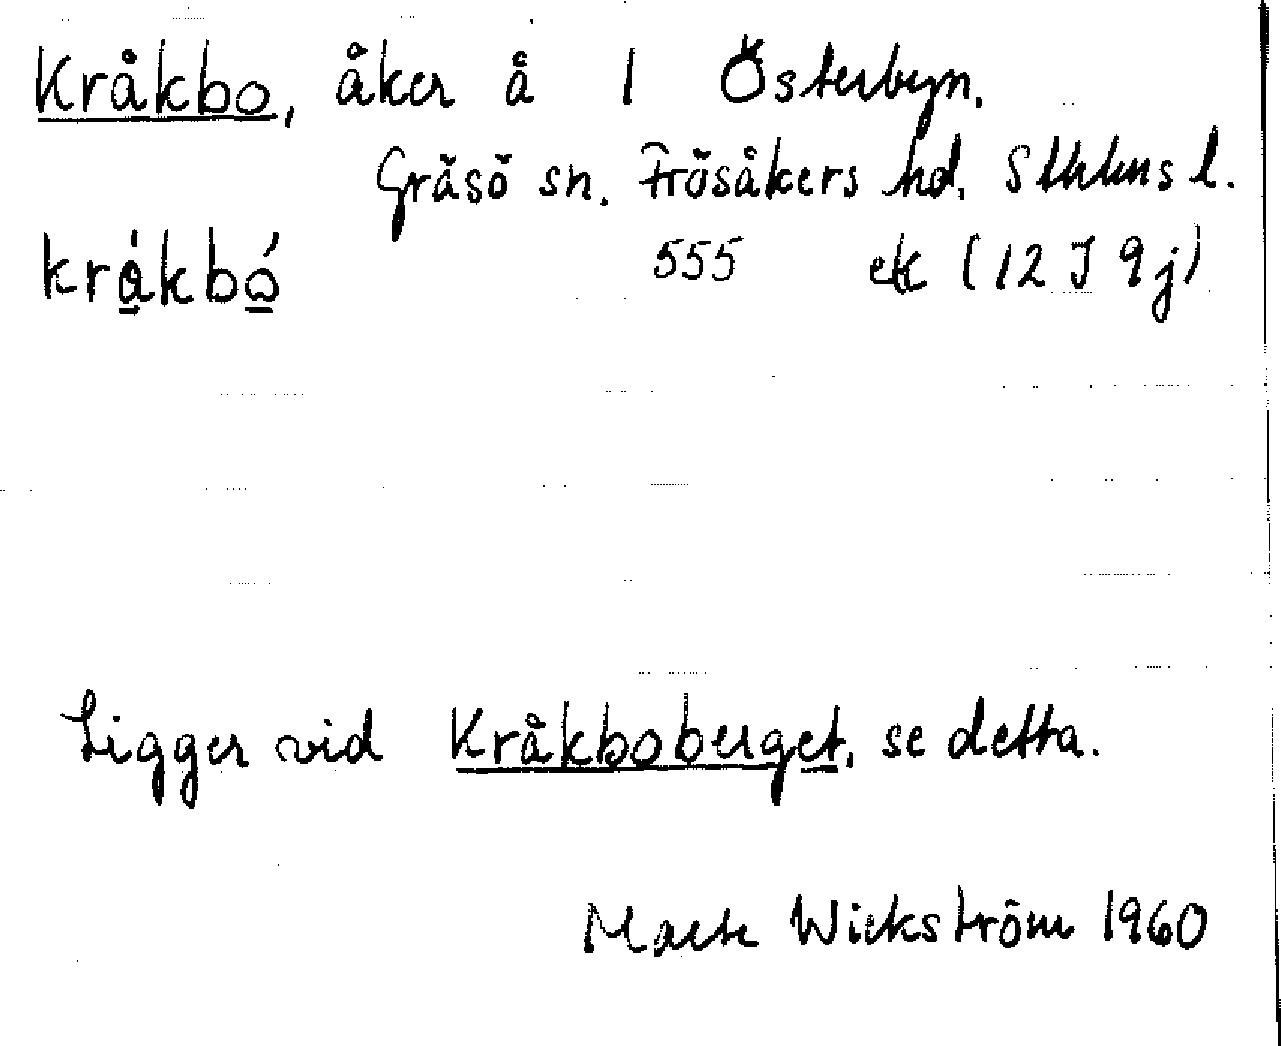 Kråkbo, åker å 1 Österbyn.
Gräsö sn. Frösåkers hd. Sthlms l.
krǻkbó 555 ek (12 J 9 j)
Ligger vid Kråkboberget, se detta.
Wickström 1960